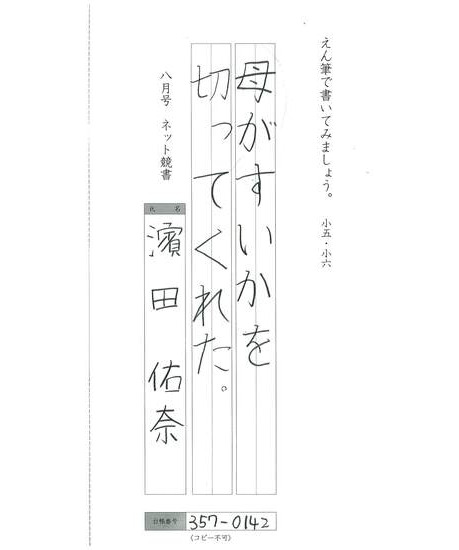 えん筆で書いてみましょう。 小五・小六
母がすいかを
切ってくれた。
八月号 ネット競書
氏 名
濱田 佑奈
台帳番号 357-0142
(コピー不可)